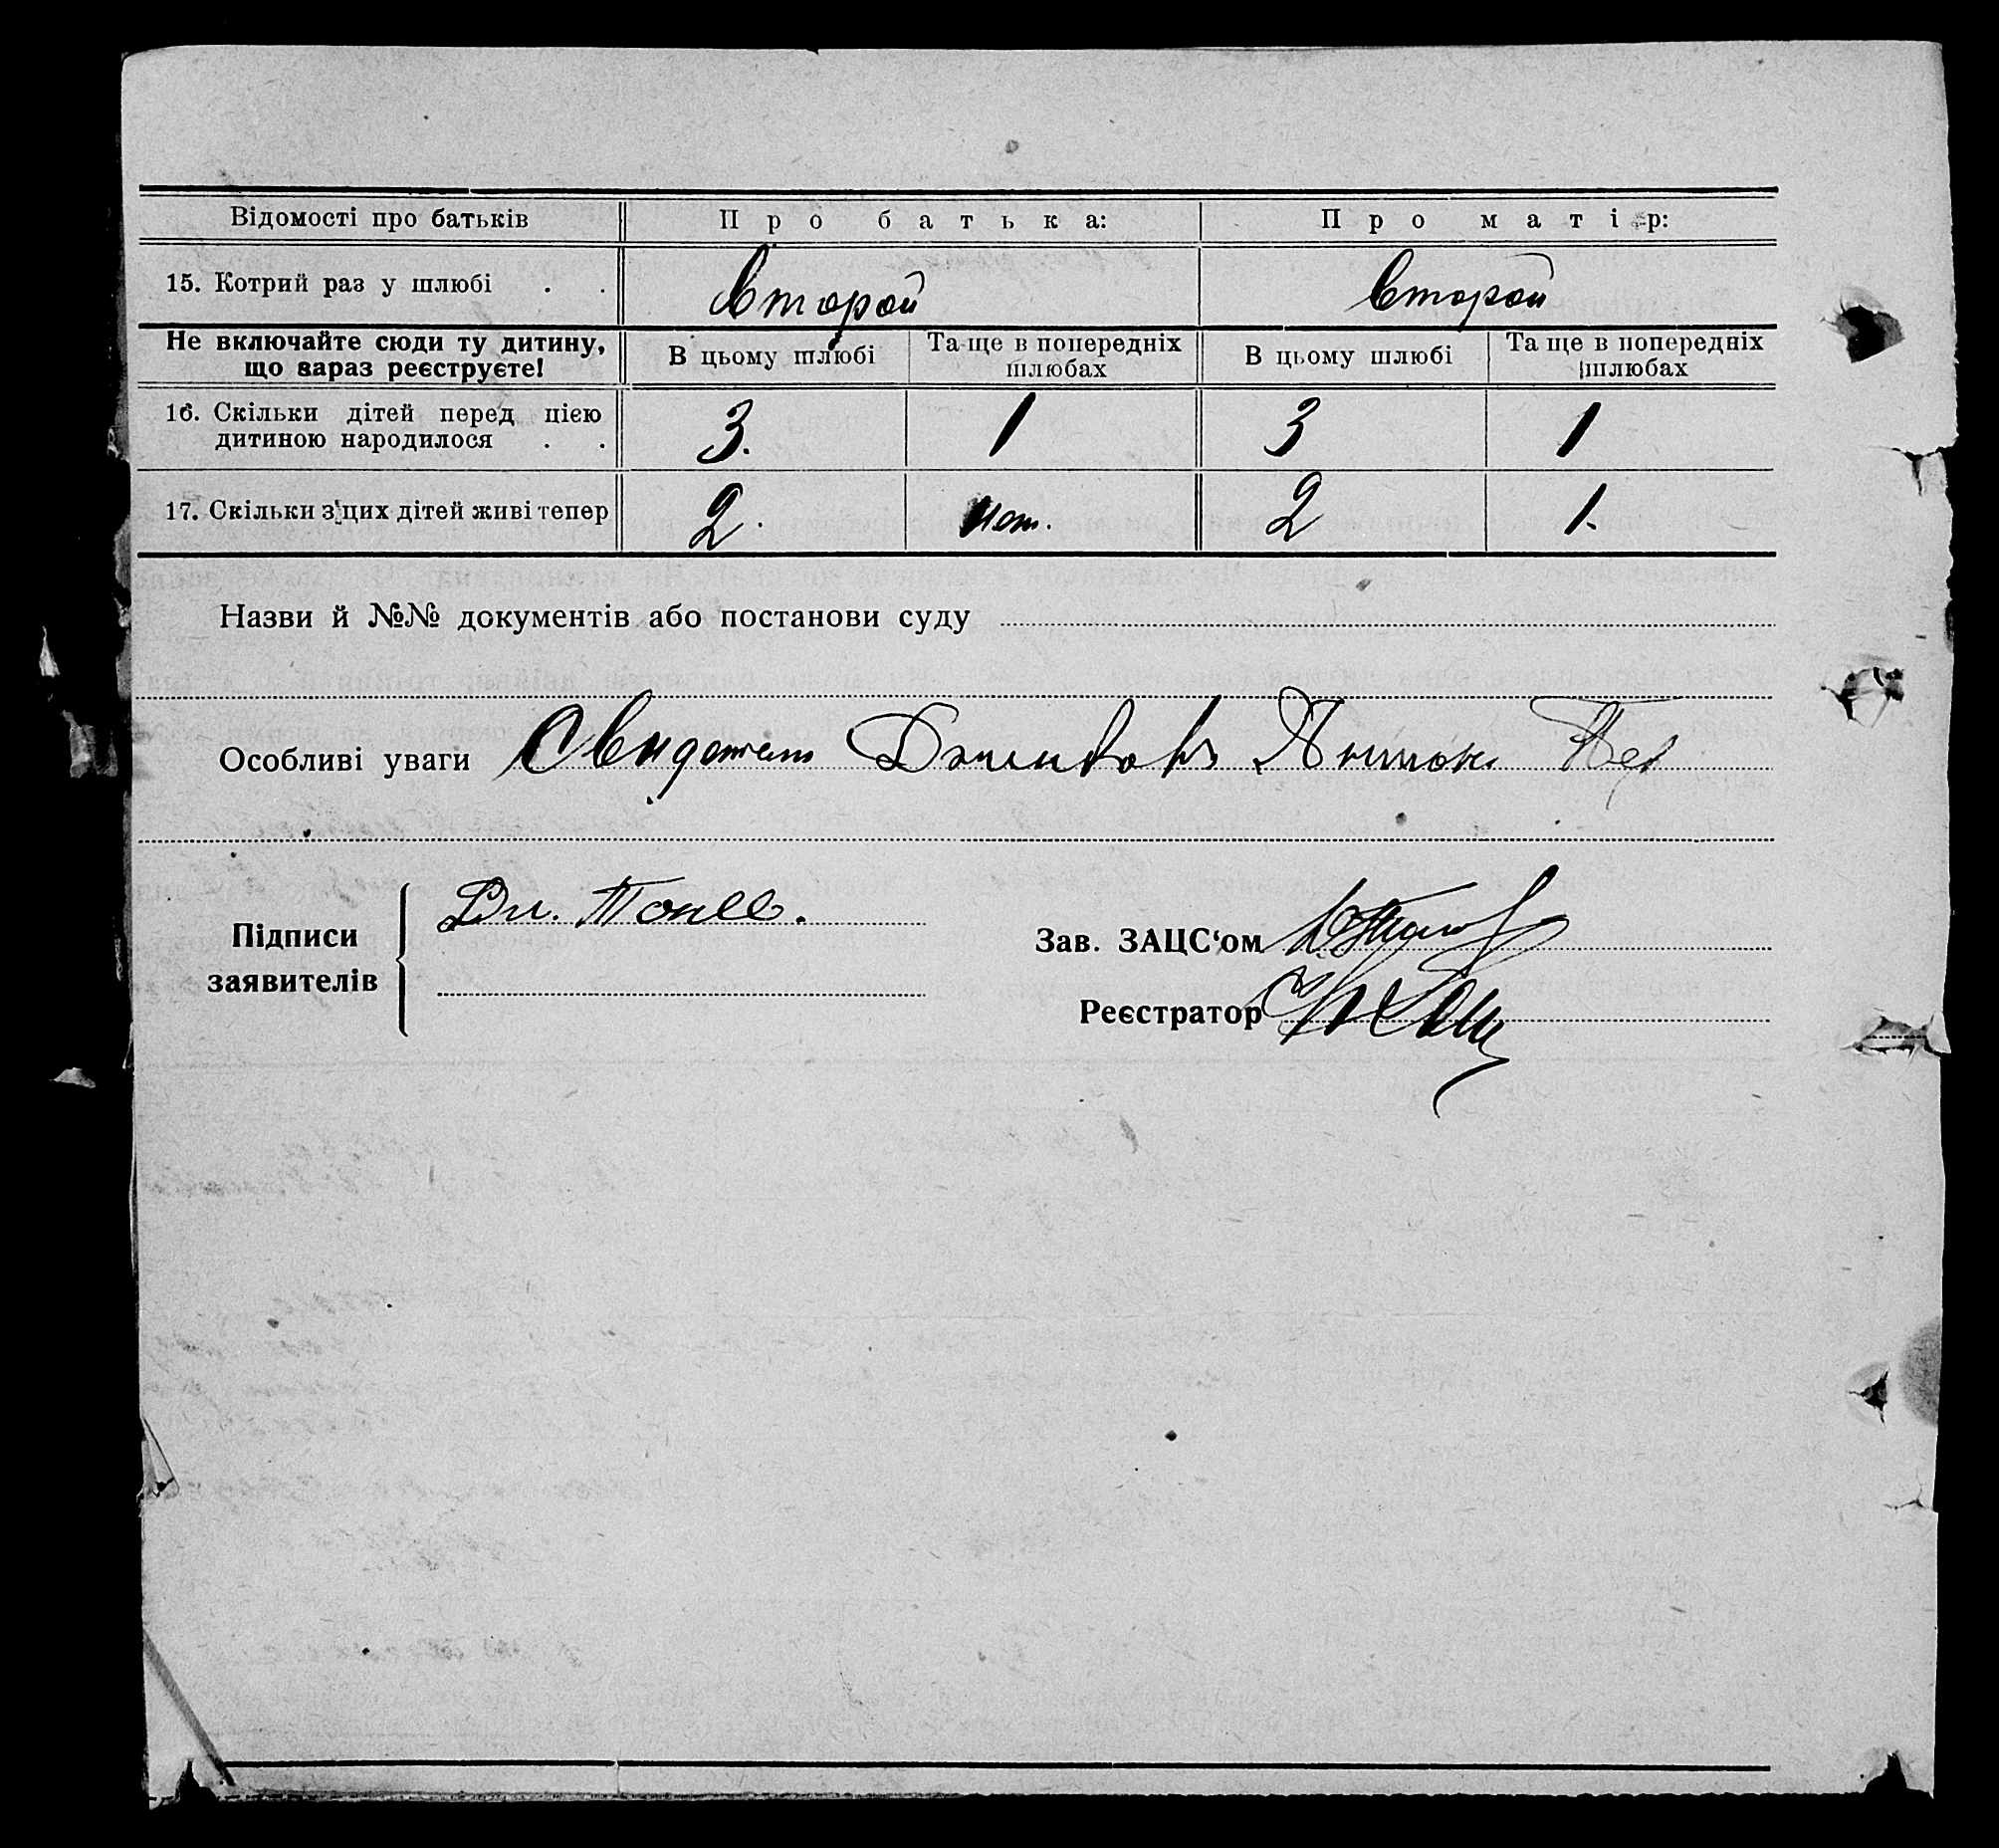 Відомості про батьків Про батька: Про матір:
15. Котрий раз у шлюбі . . второй второй
Не включайте сюди ту дитину, що зараз реєструєте! В цьому шлюбі Та ще в попередніх шлюбах В цьому шлюбі Та ще в попередніх шлюбах
16. Скільки дітей перед цією дитиною народилося . . 3. 1 3 1
17. Скільки з цих дітей живі тепер 2. нет. 2 1.
Назви й №№ документів або постанови суду
Особливі уваги Свидетель Антон
Підписи заявителів Дм.
Зав. ЗАЦС‘ом
Реєстратор